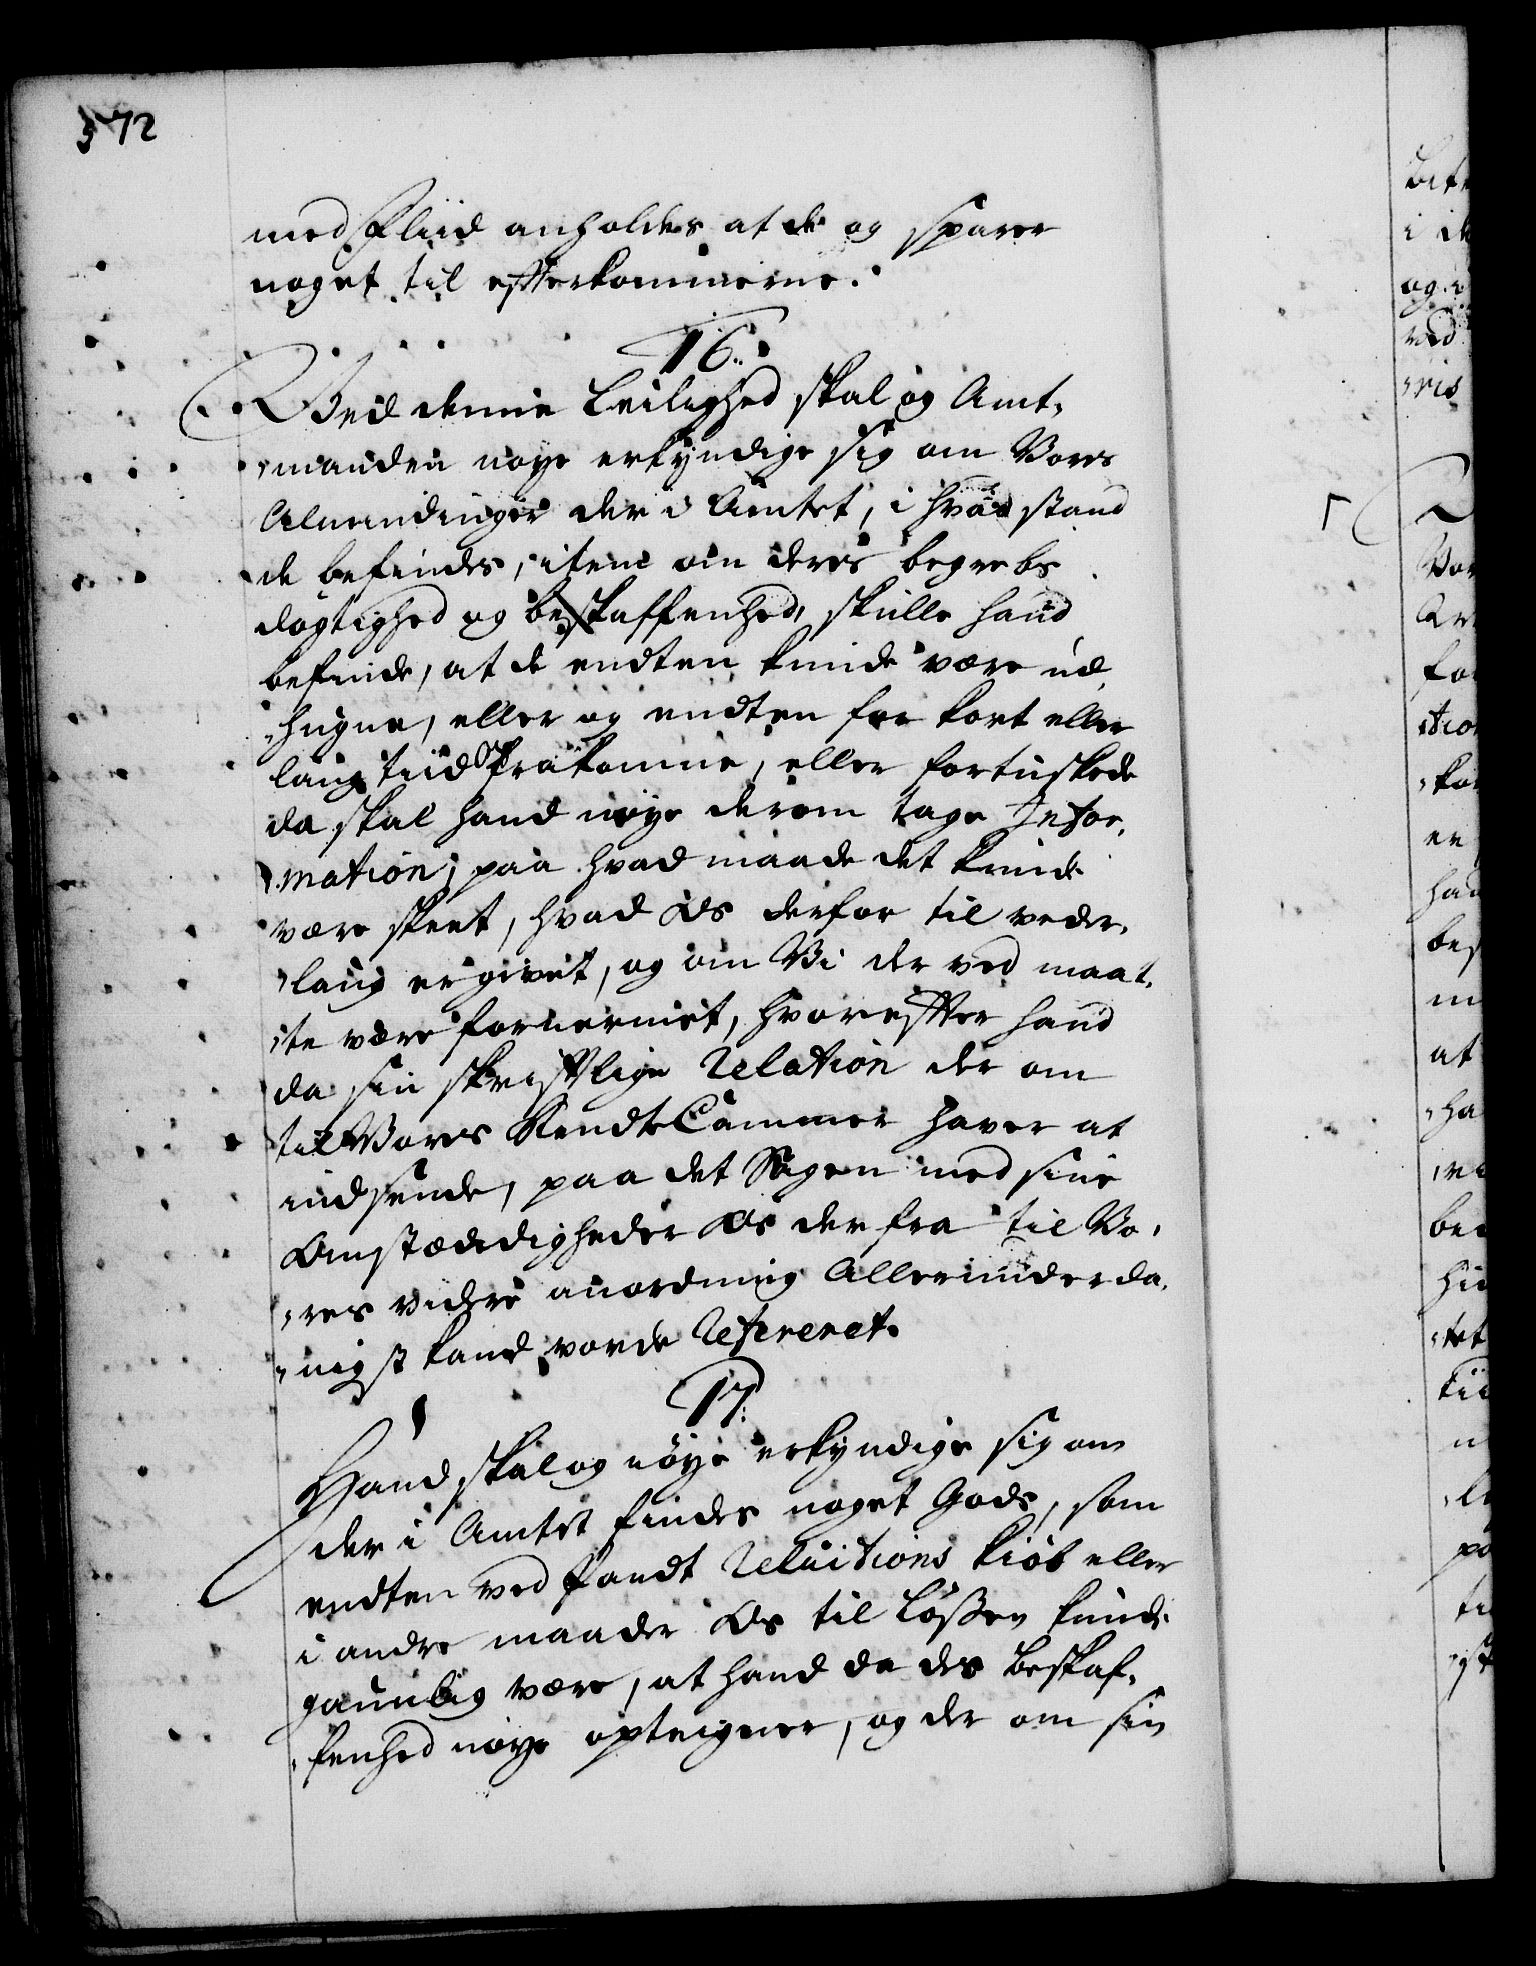 572
med Fliid anholdes at de og sparer
noget til efterkommerne.
16.
Ved denne Leilighed skal og Amt,
,,manden nøye erkyndige sig om Vores
Almindinger der i Amtet, i hvad stand
de befindes, item om deres begrebs
døgtighed og beskaffenhed, skulle hand
befinde, at de endten kunde være ud,
,,hugne, eller og endten for kort eller
lang tiid frakomne, eller fortuskede
da skal hand nøye derom tage Infor,
,,mation; paa hvad maade det kunde
være skeet, hvad Os derfor til veder,
,,laug er givet, og om Vi der ved maat,
,,te være fornermet, hvorefter hand
da sin skriftlige Relation der om
til Vores RendteCammer haver at
indsende, paa det Sagen med sine
Omstændigheder Os der fra til Vo,
,,res videre anordning Allerunderda,
,,nigst kand vorde Refereret.
17.
Hand skal og nøye erkyndige sig om
der i Amtet findes noget Gods, som
endten ved Pandt Reluitions kiøb eller
i andre maader Os til Løssen kunde
gaunlig være, at hand da des beskaf,
,,fenhed nøye opteigner, og der om sin